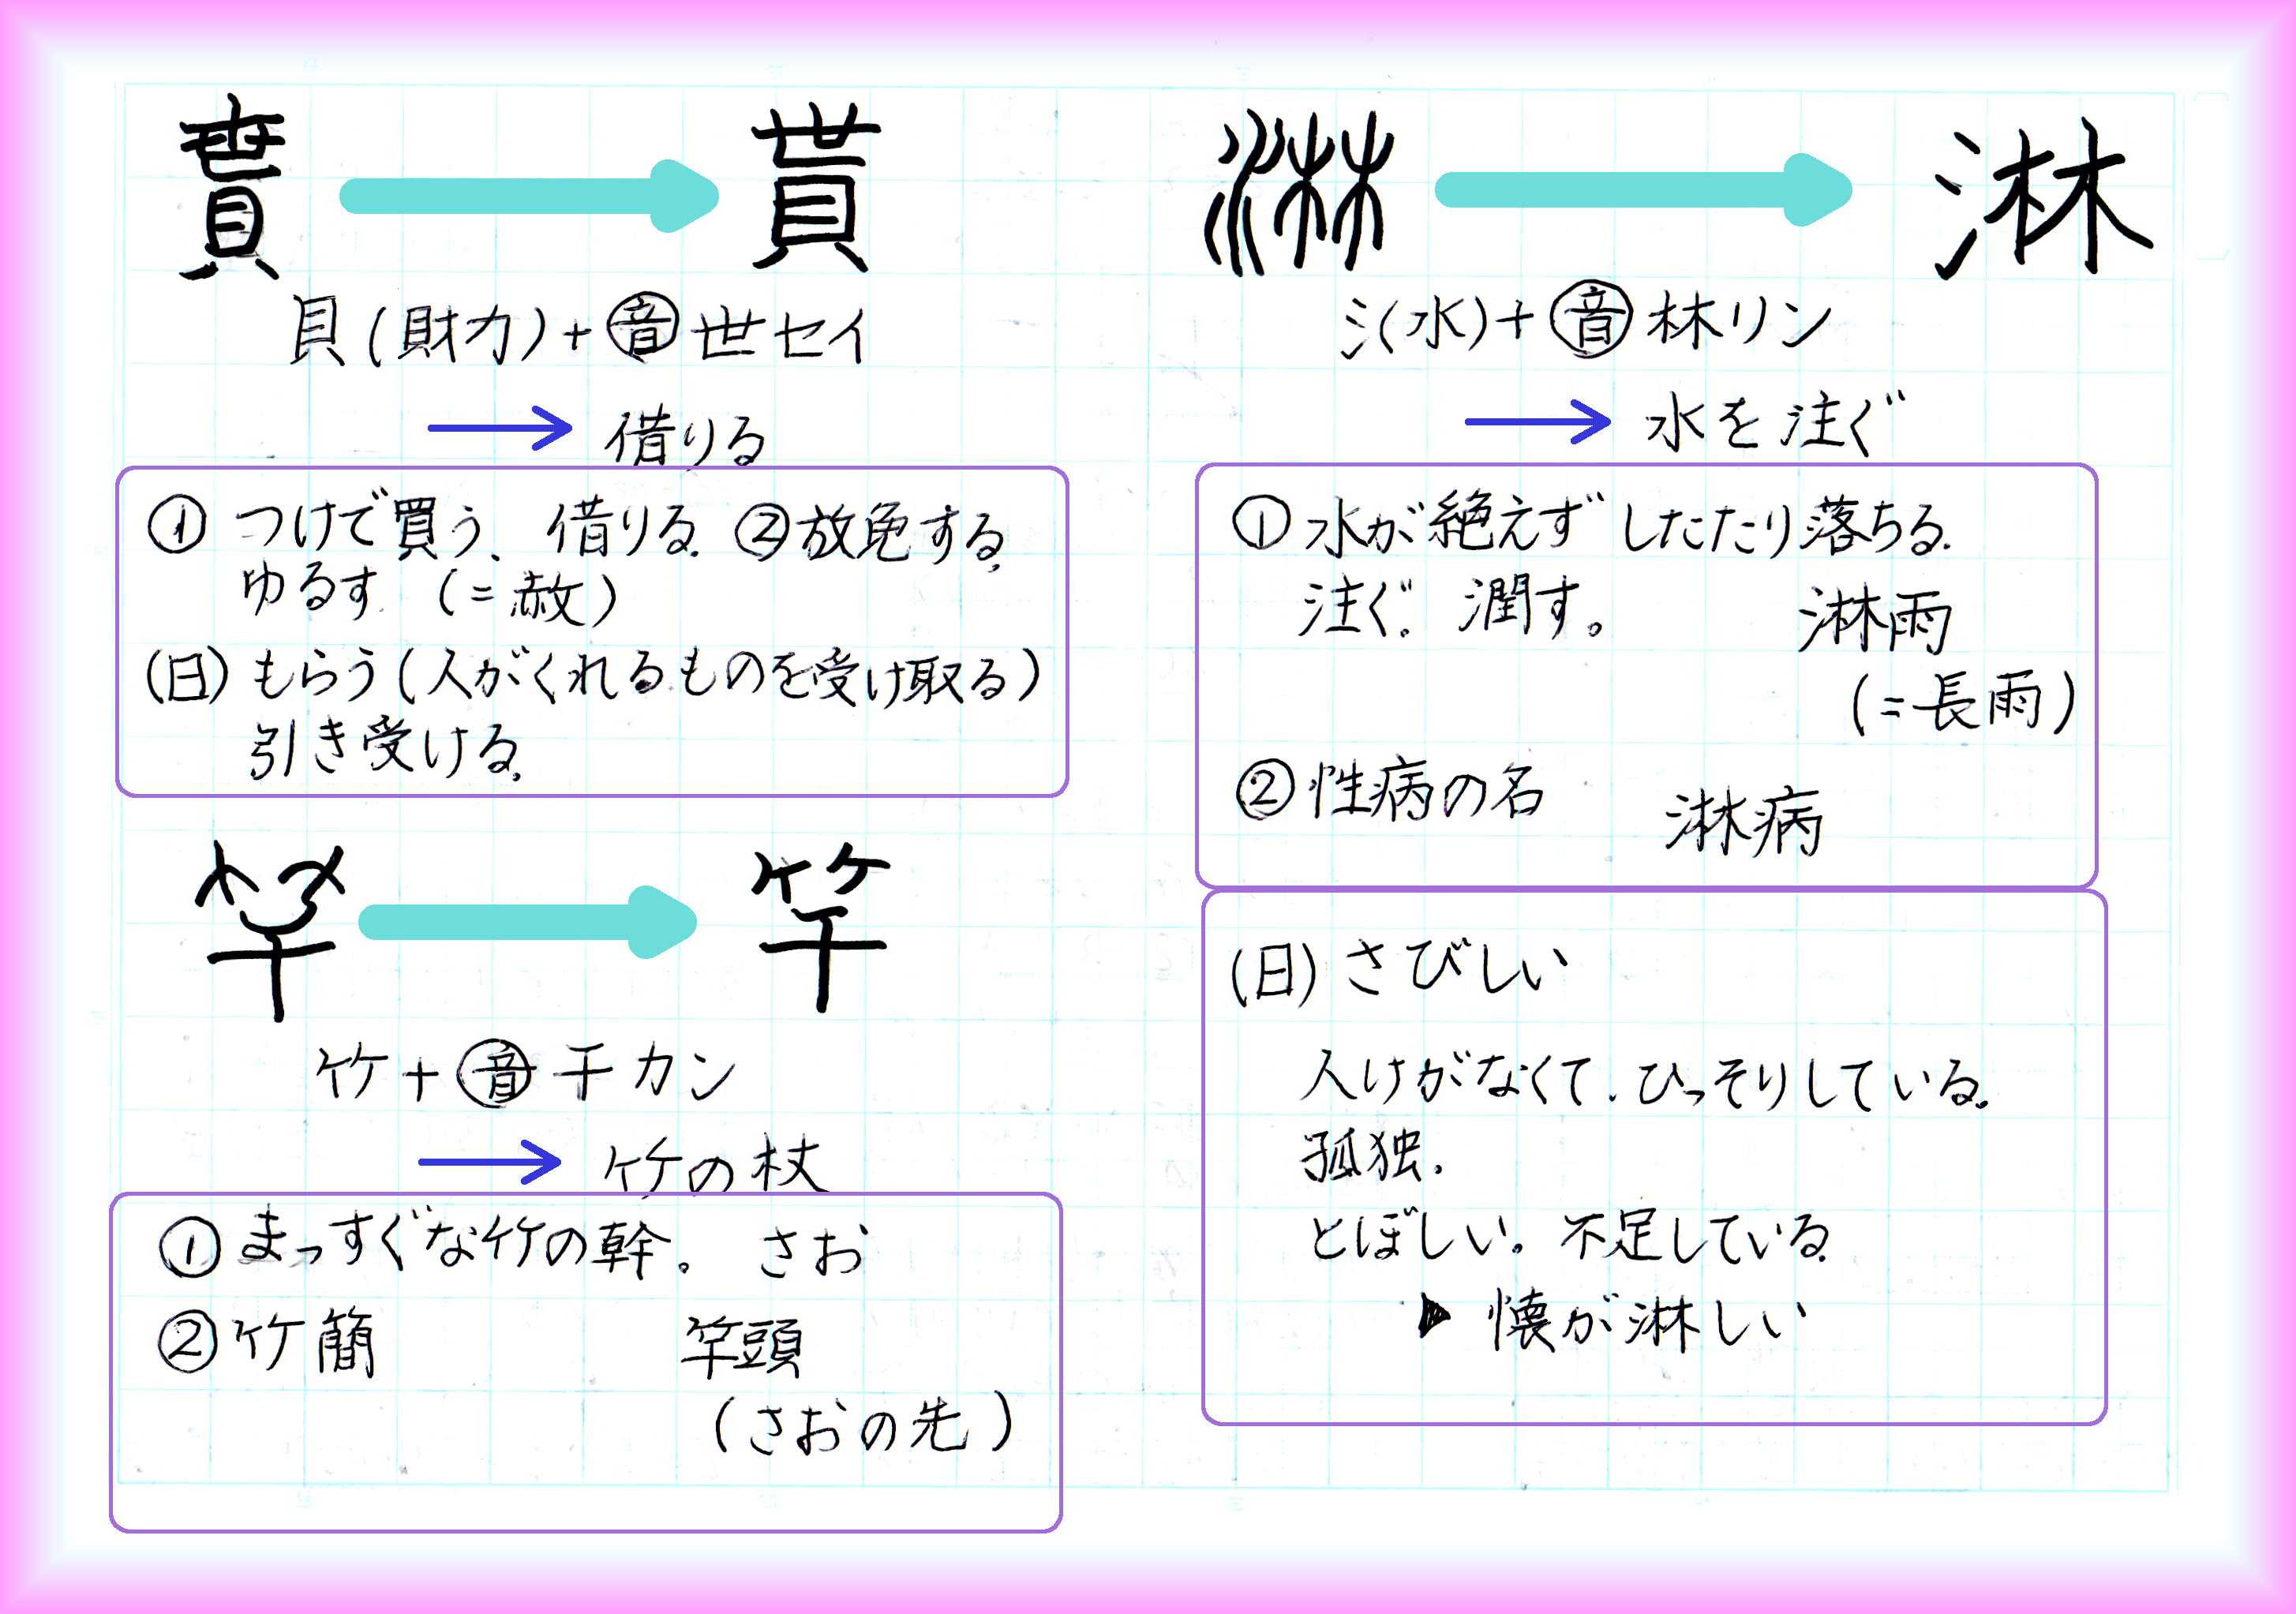 貰 貰
貝(財力)+音世セイ
借りる
① つけで買う、借りる。②放免する。
ゆるす。(=赦)
(日)もらう(人がくれるものを受け取る)
引き受ける。
竿 竿
竹+音干カン
竹の杖
①まっすぐな竹の幹。 さお
②竹簡 竿頭
(さおの先)
淋 淋
氵(水)+音林リン
水を注ぐ
①水が絶えずしたたり落ちる。
注ぐ。潤す。 淋雨
(=長雨)
②性病の名 淋病
(日)さびしい
人けがなくて、ひっそりしている。
孤独。
とぼしい。不足している。
▶ 懐が淋しい